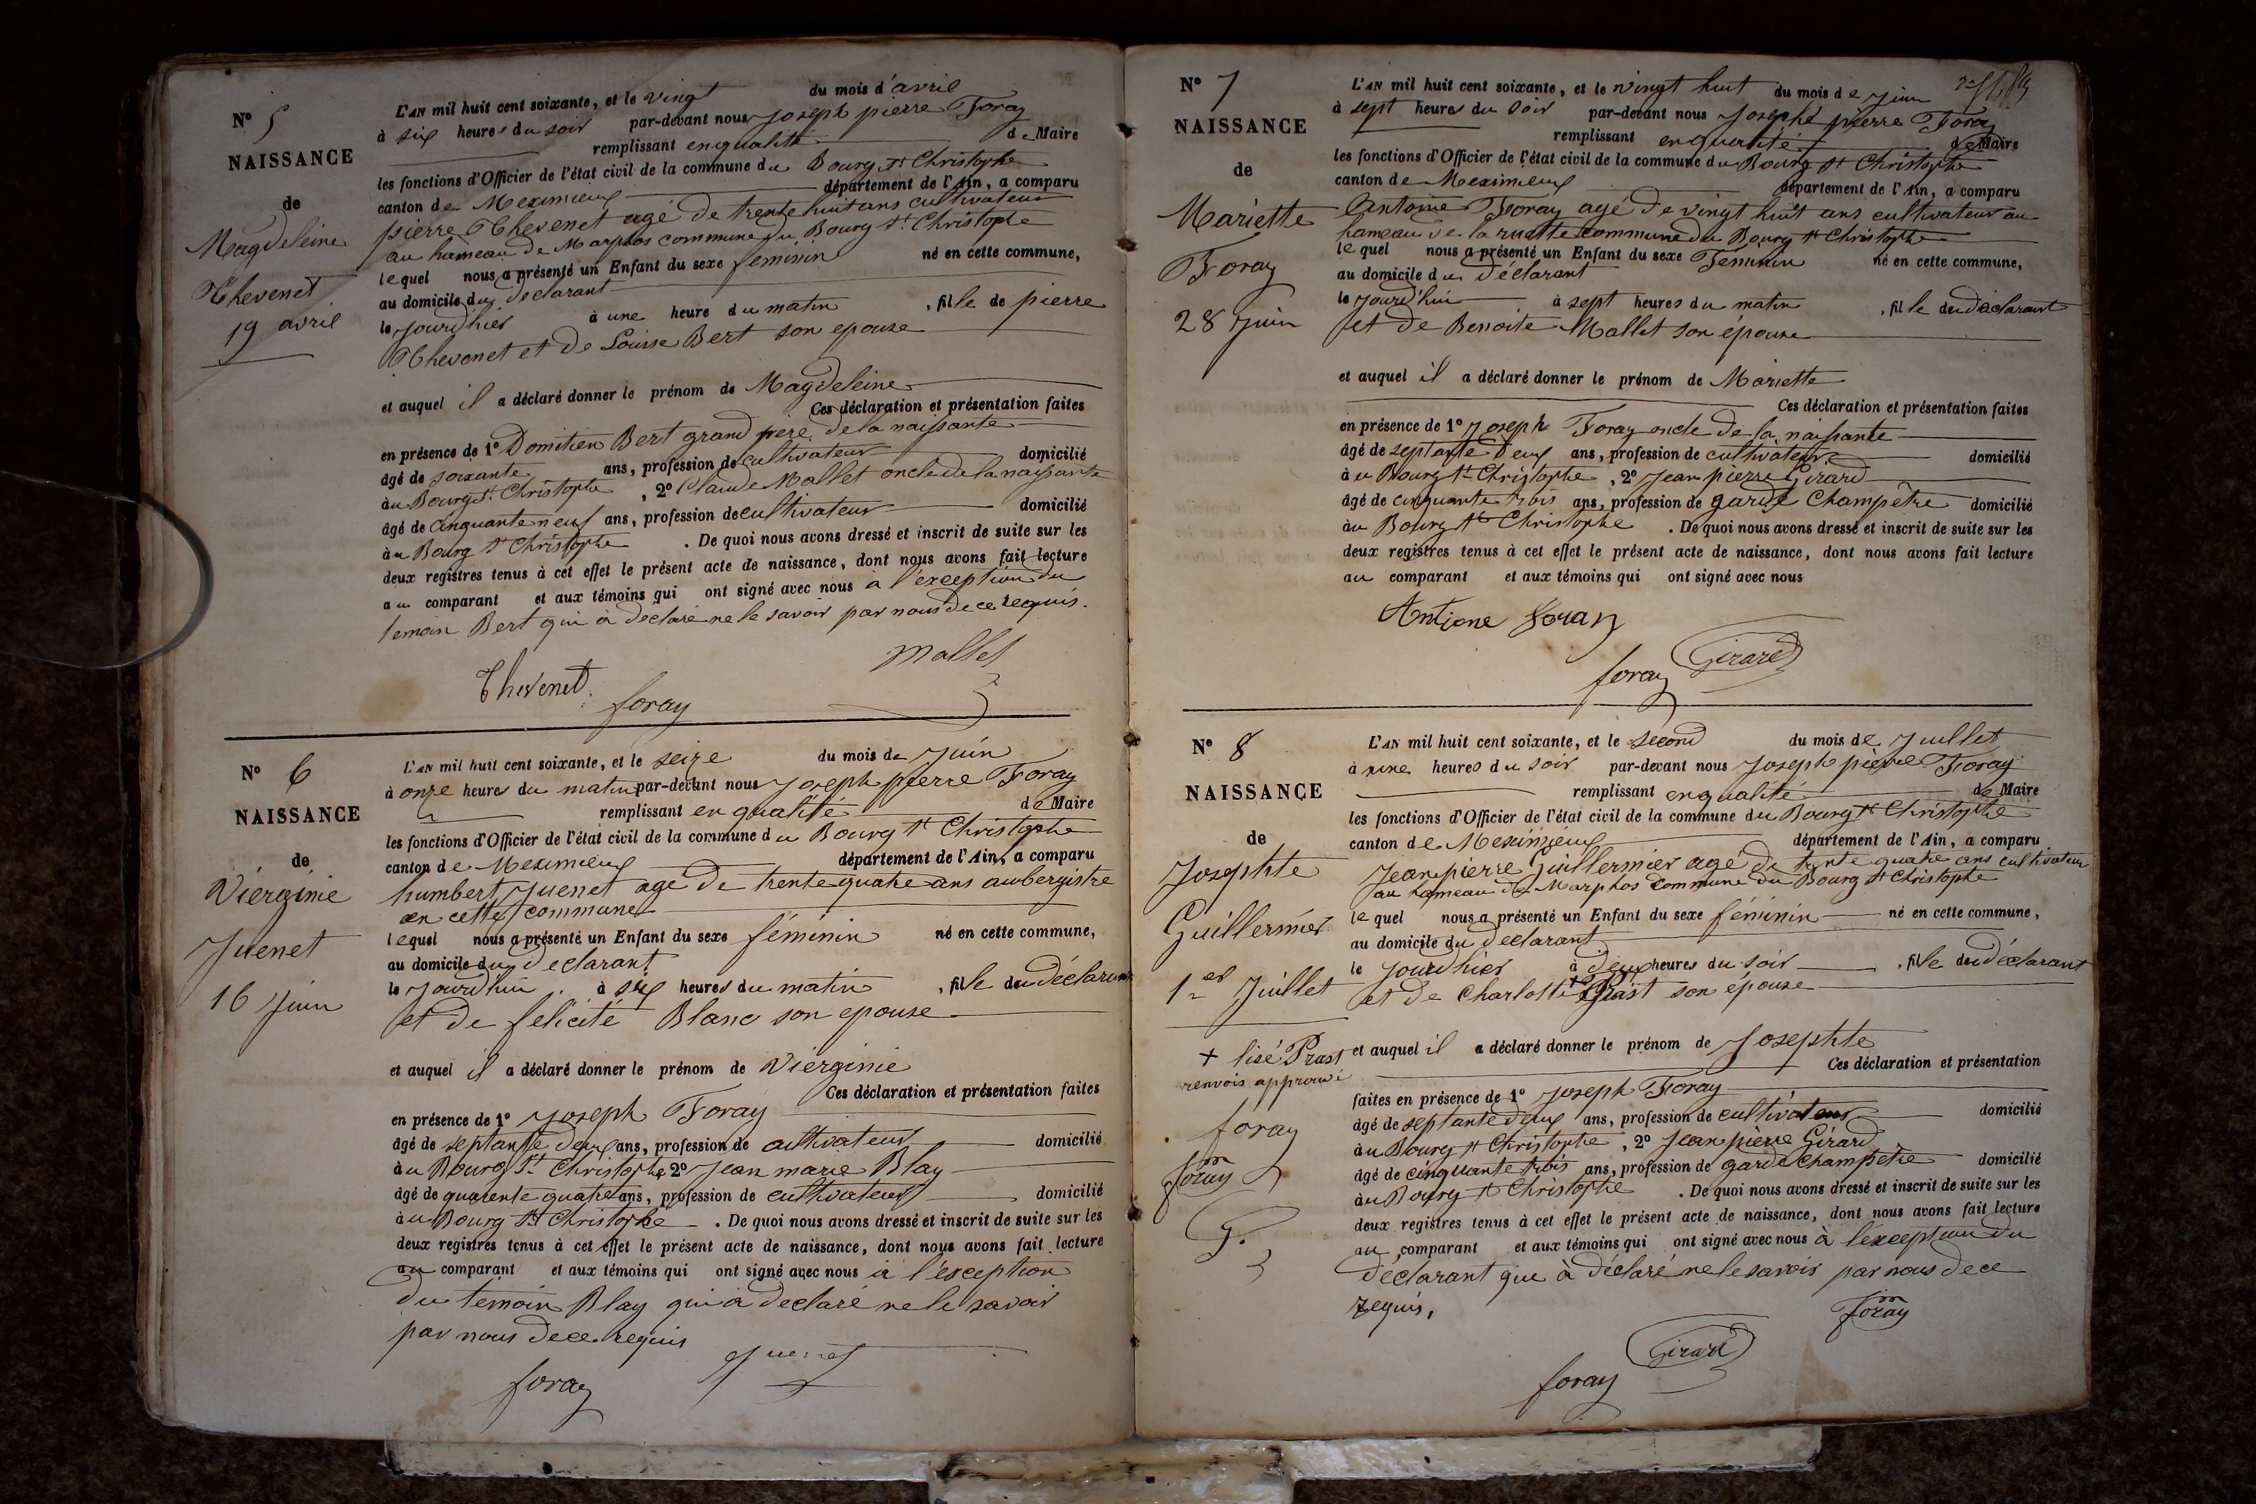 N° 5
NAISSANCE
de
Magdeleine
Thevenet
19 avril
L'AN mil huit cent soixante, et le vingt du mois d'avril
à six heures du soir par-devant nous Joseph pierre Foray
remplissant en qualité de Maire
les fonctions d'Officier de l'état civil de la commune du Bourg St Christophe
canton de Meximieux département de l'Ain, a comparu
pierre Thevenet agé de trente huit ans cultivateur
au hameau de Marphos commune du Bourg St Christophe
lequel nous a présenté un Enfant du sexe féminin né en cette commune,
au domicile du declarant
le jourdhier à une heure du matin, fille de pierre
Thevenet et de Louise Bert son epouse
et auquel il a déclaré donner le prénom de Magdeleine
Ces déclaration et présentation faites
en présence de 1° Domitien Bert grand père de la naissante
âgé de soixante ans, profession de cultivateur domicilié
àu Bourg St Christophe, 2° Claude Mallet oncle de la naissante
âgé de cinquante neuf ans, profession de cultivateur domicilié
àu Bourg St Christophe. De quoi nous avons dressé et inscrit de suite sur les
deux registres tenus à cet effet le présent acte de naissance, dont nous avons fait lecture
au comparant et aux témoins qui ont signé avec nous à l'exception du
temoin Bert qui à declaré ne le savoir par nous de ce requis.
Mallet
Thevenet
foray
N° 6
NAISSANCE
de
Vierginie
Juenet
16 Juin
L'AN mil huit cent soixante, et le seize du mois de Juin
à onze heures du matin par-devant nous Joseph pierre Foray
remplissant en qualité de Maire
les fonctions d'Officier de l'état civil de la commune du Bourg St Christophe
canton de Meximieux département de l'Ain, a comparu
humbert Juenet agé de trente quatre ans aubergistre
en cette commune
lequel nous a présenté un Enfant du sexe féminin né en cette commune,
au domicile du declarant
le jourdhui à six heures du matin, fille du déclarant
et de felicité Blanc son epouse
et auquel il a déclaré donner le prénom de Vierginie
Ces déclaration et présentation faites
en présence de 1° Joseph Foray
âgé de septante deux ans, profession de cultivateur domicilié
àu Bourg St Christophe 2° Jean marie Blay
âgé de quarente quatre ans, profession de cultivateur domicilié
àu Bourg St Christophe. De quoi nous avons dressé et inscrit de suite sur les
deux registres tenus à cet effet le présent acte de naissance, dont nous avons fait lecture
au comparant et aux témoins qui ont signé avec nous à l'éxception
du témoin Blay qui à declaré ne le savoir
par nous de ce requis
Juenet
foray
N° 7
NAISSANCE
de
Mariette
Foray
28 Juin
L'AN mil huit cent soixante, et le vingt huit du mois de Juin
à sept heures du soir par-devant nous Joseph pierre Foray
remplissant en qualité de Maire
les fonctions d'Officier de l'état civil de la commune du Bourg St Christophe
canton de Meximieux département de l'Ain, a comparu
Antoine Foray agé de vingt huit ans cultivateur au
hameau de la ruette commune du Bourg St Christophe
lequel nous a présenté un Enfant du sexe Feminin né en cette commune,
au domicile du déclarant
le jourd'hui à sept heures du matin, fille du déclarant
et de Benoite Mallet son épouse
et auquel il a déclaré donner le prénom de Mariette
Ces déclaration et présentation faites
en présence de 1° Joseph Foray oncle de la naissante
âgé de septante deux ans, profession de cultivateur domicilié
àu Bourg St Christophe, 2° Jean pierre Girard
âgé de cinquante trois ans, profession de garde Champêtre domicilié
àu Bourg St Christophe. De quoi nous avons dressé et inscrit de suite sur les
deux registres tenus à cet effet le présent acte de naissance, dont nous avons fait lecture
au comparant et aux témoins qui ont signé avec nous
Antione foray
Girard
foray
N° 8
NAISSANCE
de
Josephte
Guillermier
1er Juillet
+ lisé Prast
renvois approuvé
foray
foray
G.
L'AN mil huit cent soixante, et le second du mois de Juillet
à une heures du soir par-devant nous Joseph pierre Foray
remplissant en qualité de Maire
les fonctions d'Officier de l'état civil de la commune du Bourg St Christophe
canton de Meximieux département de l'Ain, a comparu
Jean pierre Guillermier agé de trente quatre ans cultivateur
au hameau de Marphos commune du Bourg St Christophe
lequel nous a présenté un Enfant du sexe féminin né en cette commune,
au domicile du declarant
le jourdhier à deux heures du soir, fille du déclarant
et de Charlotte + Prast son épouse
et auquel il a déclaré donner le prénom de Josephte
Ces déclaration et présentation
faites en présence de 1° Joseph Foray
âgé de septante deux ans, profession de cultivateur domicilié
àu Bourg St Christophe, 2° Jean pierre Girard
âgé de cinquante trois ans, profession de garde Champetre domicilié
àu Bourg St Christophe. De quoi nous avons dressé et inscrit de suite sur les
deux registres tenus à cet effet le présent acte de naissance, dont nous avons fait lecture
au comparant et aux témoins qui ont signé avec nous à l'éxception du
déclarant que à déclaré ne le savoir par nous de ce
requis,
foray
Girard
foray